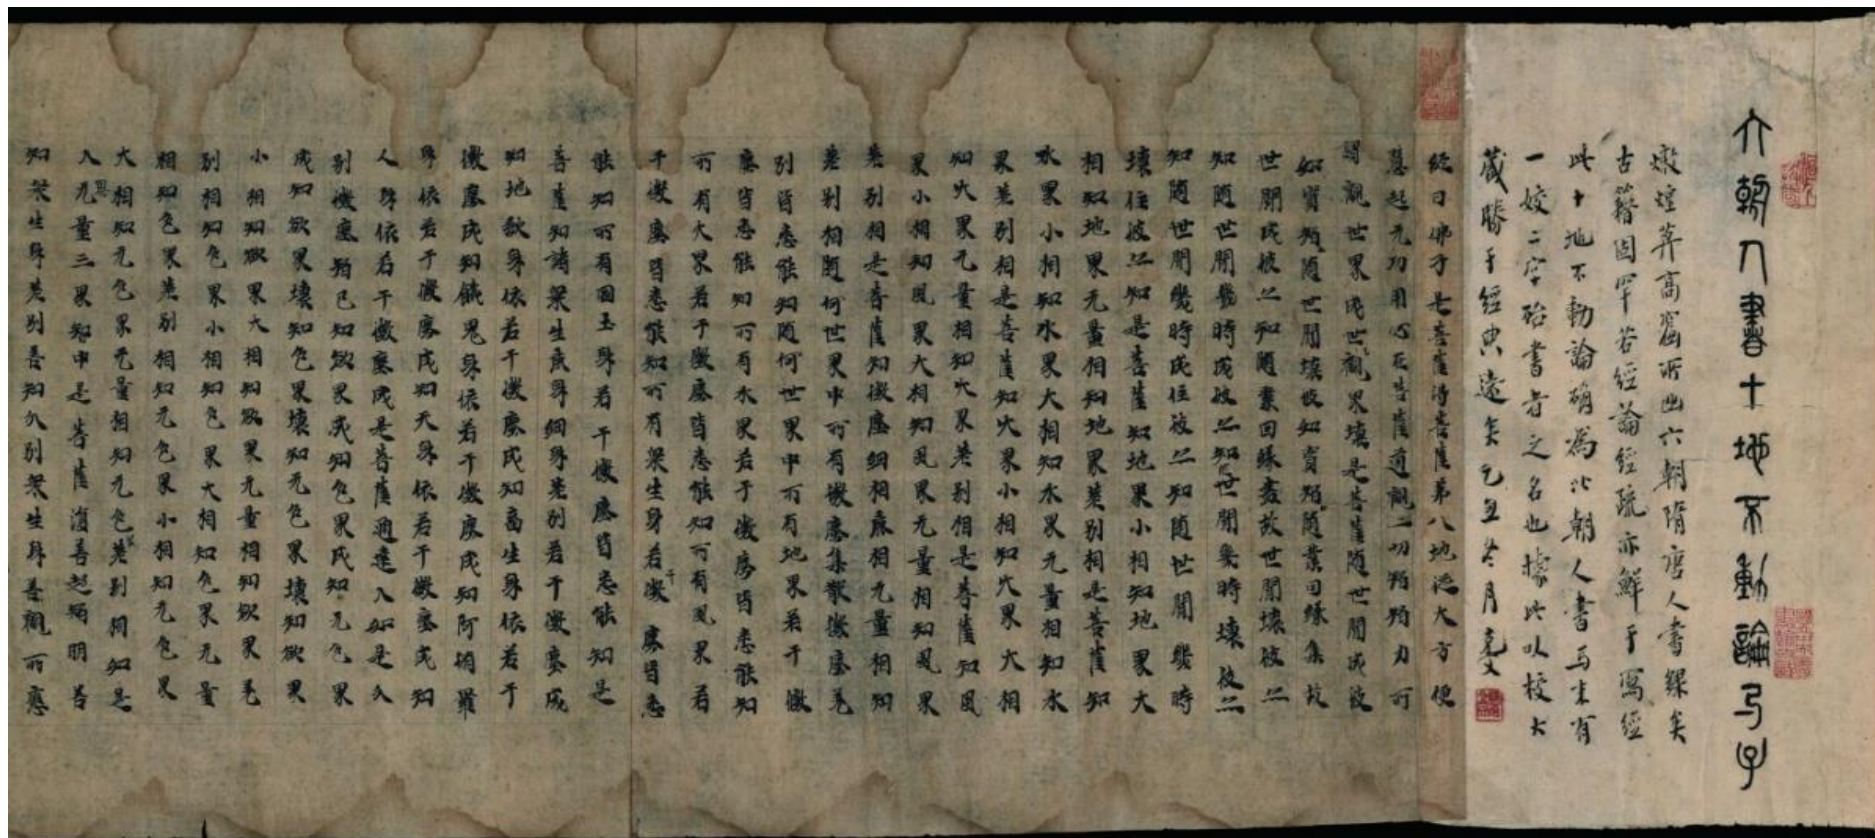 六朝人書十地不動論弓子
燉煌莽高窟所出六朝隋唐人書緐矣
古籍固罕若經論經疏亦鮮于寫經
此十地不動論碻為北朝人書馬生有
一姣二字殆書者之名也據此以校大
藏勝于經典遠矣乙丑冬月克文
經曰佛子是菩薩得菩薩第八地從大方便
慧起无功用心在菩薩道觀一切智智力可
謂觀世界成世觀界壞是菩薩隨世間成彼
如實知隨世間壞彼如實知隨業因緣集故
世間成彼亦知隨業因緣盡故世間壞彼亦
知隨世間幾時成彼亦知世間幾時壞彼亦
知隨世間幾時成住彼亦知隨世間幾時
壞住彼亦知是菩薩知地界小相知地界大
相知地界无量相知地界差別相是菩薩知
水界小相知水界大相知水界无量相知水
界差別相是菩薩知火界小相知火界大相
知火界无量相知火界差別相是菩薩知風
界小相知風界大相知風界无量相知風界
差別相是菩薩知微塵細相麁相无量相知
差別相隨何世界中所有微塵集散微塵差
別皆悉能知隨何世界中所有地界若干微
塵皆悉能知所有水界若干微塵皆悉能知
所有火界若干微塵皆悉能知所有風界若
干微塵皆悉能知所有眾生身若干微塵皆悉
能知所有國土身若干微塵皆悉能知是
菩薩知諸眾生麁身細身差別若干微塵成
知地獄身依若干微塵成知畜生身依若干
微塵成知餓鬼身依若干微塵成知阿脩羅
身依若干微塵成知天身依若干微塵成知
人身依若干微塵成是菩薩通達入如是分
別微塵智已知欲界成知色界成知无色界
成知欲界壞知色界壞知无色界壞知欲界
小相知欲界大相知欲界无量相知欲界差
別相知色界小相知色界大相知色界无量
相知色界差別相知无色界小相知无色界
大相知无色界无量相知无色界差別相知是
入思无量三界知中是菩薩復善起智明善
知眾生身差別善知分別眾生身善觀所應